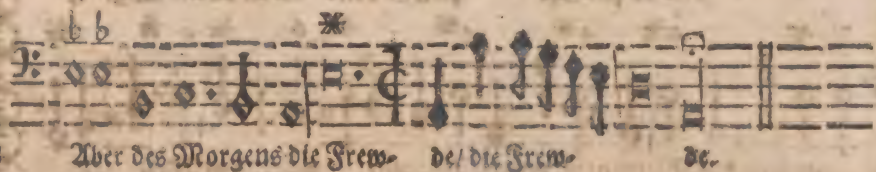 b b
Aber des Morgens die Frew- de/ die Frew- de.